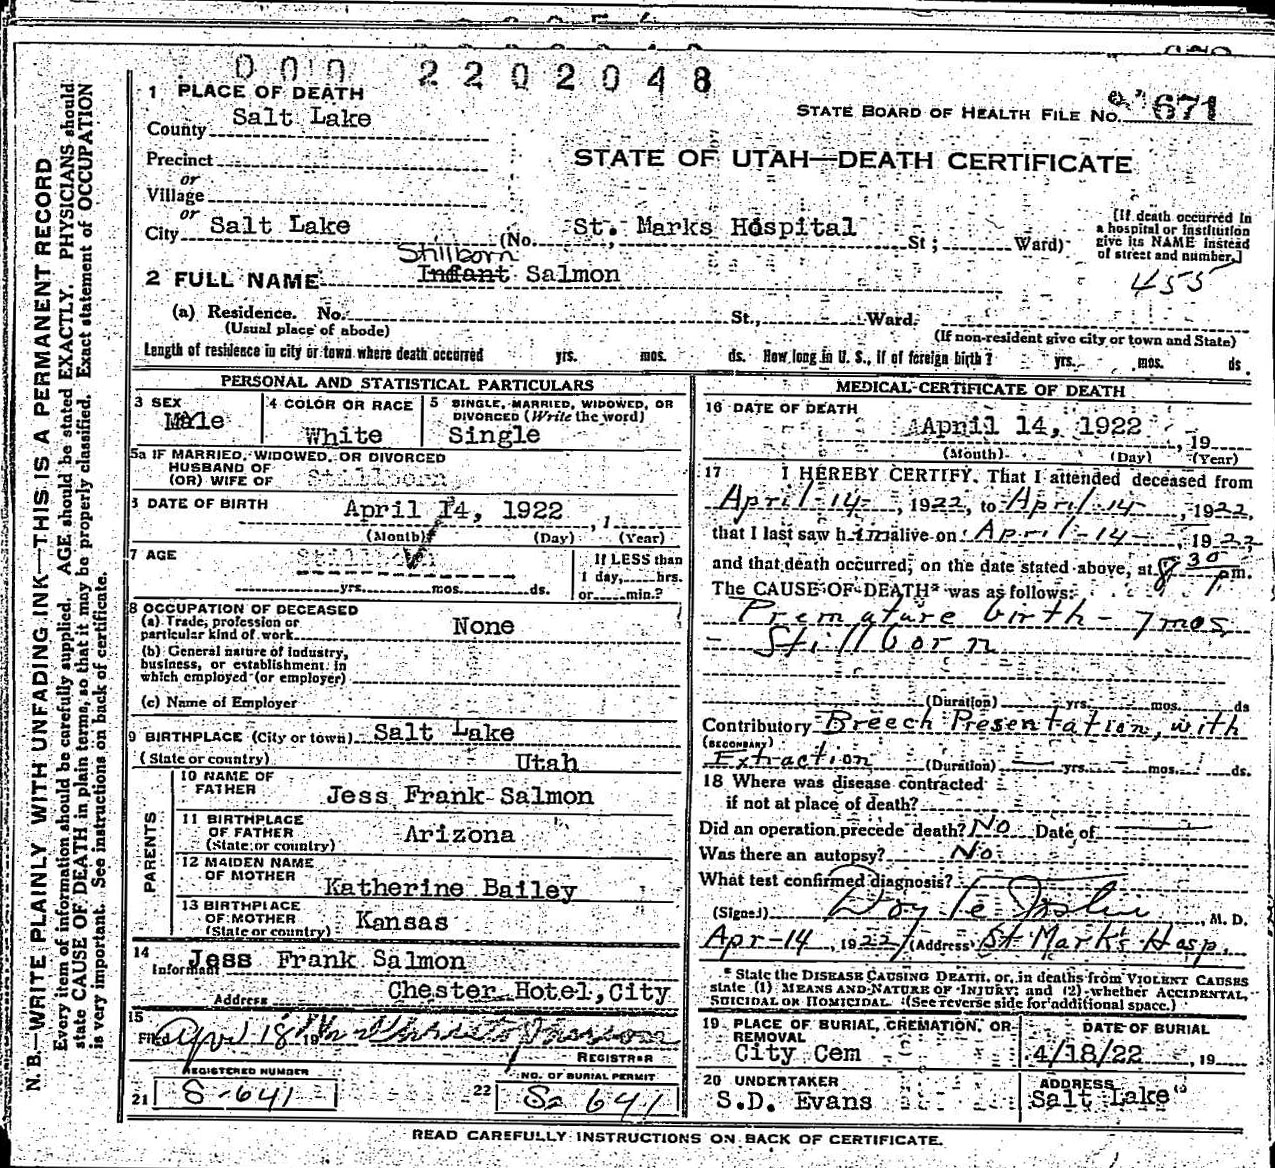 000 2202048
1 PLACE OF DEATH
STATE BOARD OF HEALTH FILE No. 671
County Salt Lake
Precinct
STATE OF UTAH—DEATH CERTIFICATE
or
Village
or
City Salt Lake (No. St. Marks Hospital St; Ward)
[If death occurred in
a hospital or institution
give its NAME instead
of street and number.]
Stillborn
2 FULL NAME Infant Salmon
455
(a) Residence. No. St., Ward.
(Usual place of abode) (If non-resident give city or town and State)
Length of residence in city or town where death occurred yrs. mos. ds. How long in U. S., if of foreign birth? yrs. mos. ds.
PERSONAL AND STATISTICAL PARTICULARS
3 SEX Male
4 COLOR OR RACE White
5 SINGLE, MARRIED, WIDOWED, OR
DIVORCED (Write the word)
Single
5a IF MARRIED, WIDOWED, OR DIVORCED
HUSBAND OF
(OR) WIFE OF Stillborn
6 DATE OF BIRTH April 14, 1922 , 1
(Month) (Day) (Year)
7 AGE
yrs. mos. ds.
If LESS than
1 day, hrs.
or min.?
8 OCCUPATION OF DECEASED
(a) Trade, profession or
particular kind of work None
(b) General nature of industry,
business, or establishment in
which employed (or employer)
(c) Name of Employer
9 BIRTHPLACE (City or town) Salt Lake
(State or country) Utah
PARENTS
10 NAME OF
FATHER Jess Frank Salmon
11 BIRTHPLACE
OF FATHER
(State or country) Arizona
12 MAIDEN NAME
OF MOTHER Katherine Bailey
13 BIRTHPLACE
OF MOTHER
(State or country) Kansas
14 Informant Jess Frank Salmon
Address Chester Hotel, City
15
Filed April 18 19
REGISTRAR
REGISTERED NUMBER
21 S-641
NO. OF BURIAL PERMIT
22 S- 641
MEDICAL CERTIFICATE OF DEATH
16 DATE OF DEATH
April 14, 1922 , 19
(Month) (Day) (Year)
17 I HEREBY CERTIFY. That I attended deceased from
April-14-, 1922, to April-14-, 1922,
that I last saw him alive on April-14-, 1922
and that death occurred, on the date stated above, at 8 30 pm.
The CAUSE OF DEATH* was as follows:
Premature birth - 7 mos
- Stillborn
(Duration) yrs. mos. ds
Contributory Breech Presentation, with
(SECONDARY)
Extraction (Duration) yrs. mos. ds.
18 Where was disease contracted
if not at place of death?
Did an operation precede death? No Date of
Was there an autopsy? No
What test confirmed diagnosis?
(Signed) , M. D.
Apr-14, 1922 (Address) St Mark's Hosp.
* State the DISEASE CAUSING DEATH, or, in deaths from VIOLENT CAUSES
state (1) MEANS AND NATURE OF INJURY; and (2) whether ACCIDENTAL,
SUICIDAL OR HOMICIDAL. (See reverse side for additional space.)
19 PLACE OF BURIAL, CREMATION, OR
REMOVAL
City Cem
DATE OF BURIAL
4/18/22 , 19
20 UNDERTAKER
S.D. Evans
ADDRESS
Salt Lake
READ CAREFULLY INSTRUCTIONS ON BACK OF CERTIFICATE.
N. B.—WRITE PLAINLY WITH UNFADING INK—THIS IS A PERMANENT RECORD
Every item of information should be carefully supplied. AGE should be stated EXACTLY. PHYSICIANS should
state CAUSE OF DEATH in plain terms, so that it may be properly classified. Exact statement of OCCUPATION
is very important. See instructions on back of certificate.